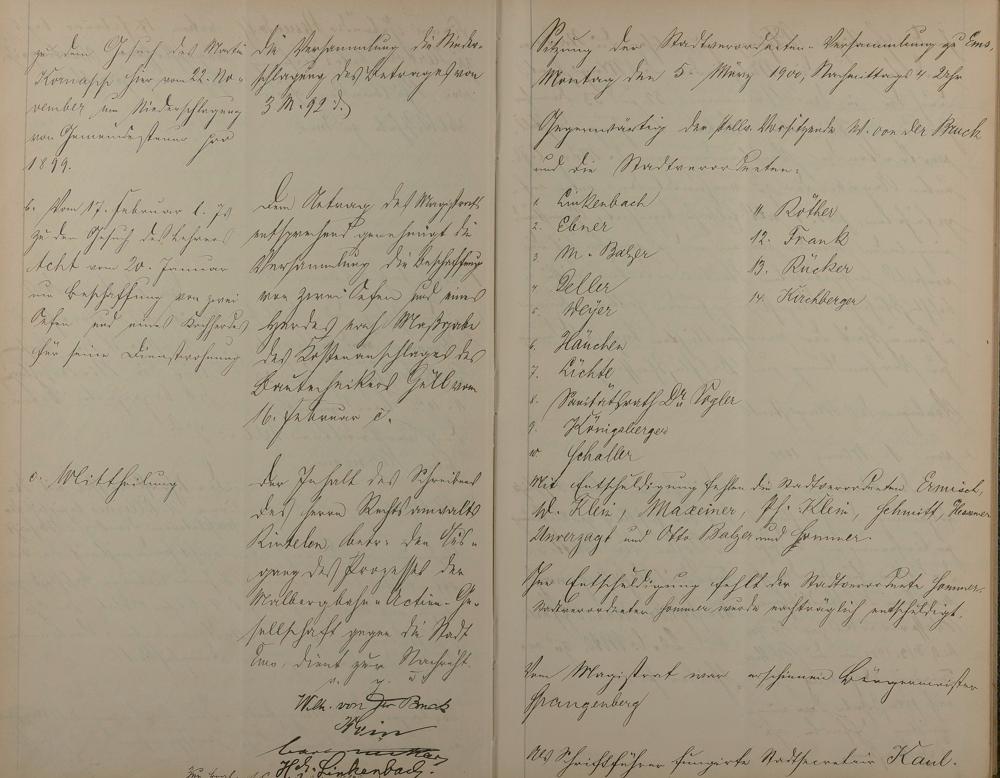 zu dem Gesuch des Martin
hier vom 22. No-
vember um Niederschlagung
von Gemeindesteuer pro
1899.
die Versammlung die Nieder-
schlagung des Betrages von
3 M. 92 d.)
b. Vom 17. Februar l. Js
zu dem Gesuch des Lehrers
Acht vom 20. Januar
um Beschaffung von zwei
Oefen und eines Kochherdes
für seine Dienstwohnung
Dem Antrag des Magistrats
entsprechend genehmigt die
Versammlung die Beschaffung
von zwei Oefen und eines
Herdes nach Maßgabe
des Kostenanschlages des
Bautechnikers Güll vom
16. Februar c.
c. Mittheilung
Der Inhalt des Schreibens
des Herrn Rechtsanwalts
Rintelen, betr. den Aus-
gang des Prozesses der
Malbergbahn-Actien-Ge-
sellschaft gegen die Stadt
Ems, dient zur Nachricht.
v. g. u.
Wilh. von der Bruck
Hch. Linkenbach.
Sitzung der Stadtverordneten-Versammlung zu Ems.
Montag den 5. März 1900, Nachmittags 4 Uhr
Gegenwärtig der stellv. Vorsitzende W. von der Bruck
und die Stadtverordneten:
1. Linkenbach
2. Ebner
3. M. Balzer
4. Geller
5. Weyer
6. Häuchen
7. Lichte
8. Sanitätsrath Dr. Vogler
9. Königsberger
10. Schaller
11. Röther
12. Frank
13. Rücker
14. Kirchberger
Mit Entschuldigung fehlen die Stadtverordneten Ermisch,
W. Klein, Maxeiner, Ph. Klein, Schmitt,
Unverzagt und Otto Balzer und Hommer.
Ohne Entschuldigung fehlt der Stadtverordnete Hommer.
Stadtverordneter Hommer wurde nachträglich entschuldigt.
Vom Magistrat war erschienen Bürgermeister
Spangenberg
Als Schriftführer fungirte Stadtsecretair Kaul.